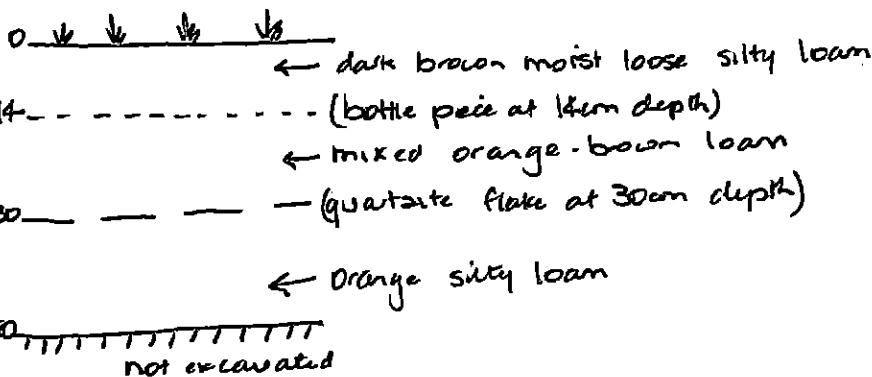 0
← dark brown moist loose silty loam
14
(bottle peice at 14cm depth)
← mixed orange-brown loam
(quartzite flake at 30cm depth)
← Orange silty loam
not excavated